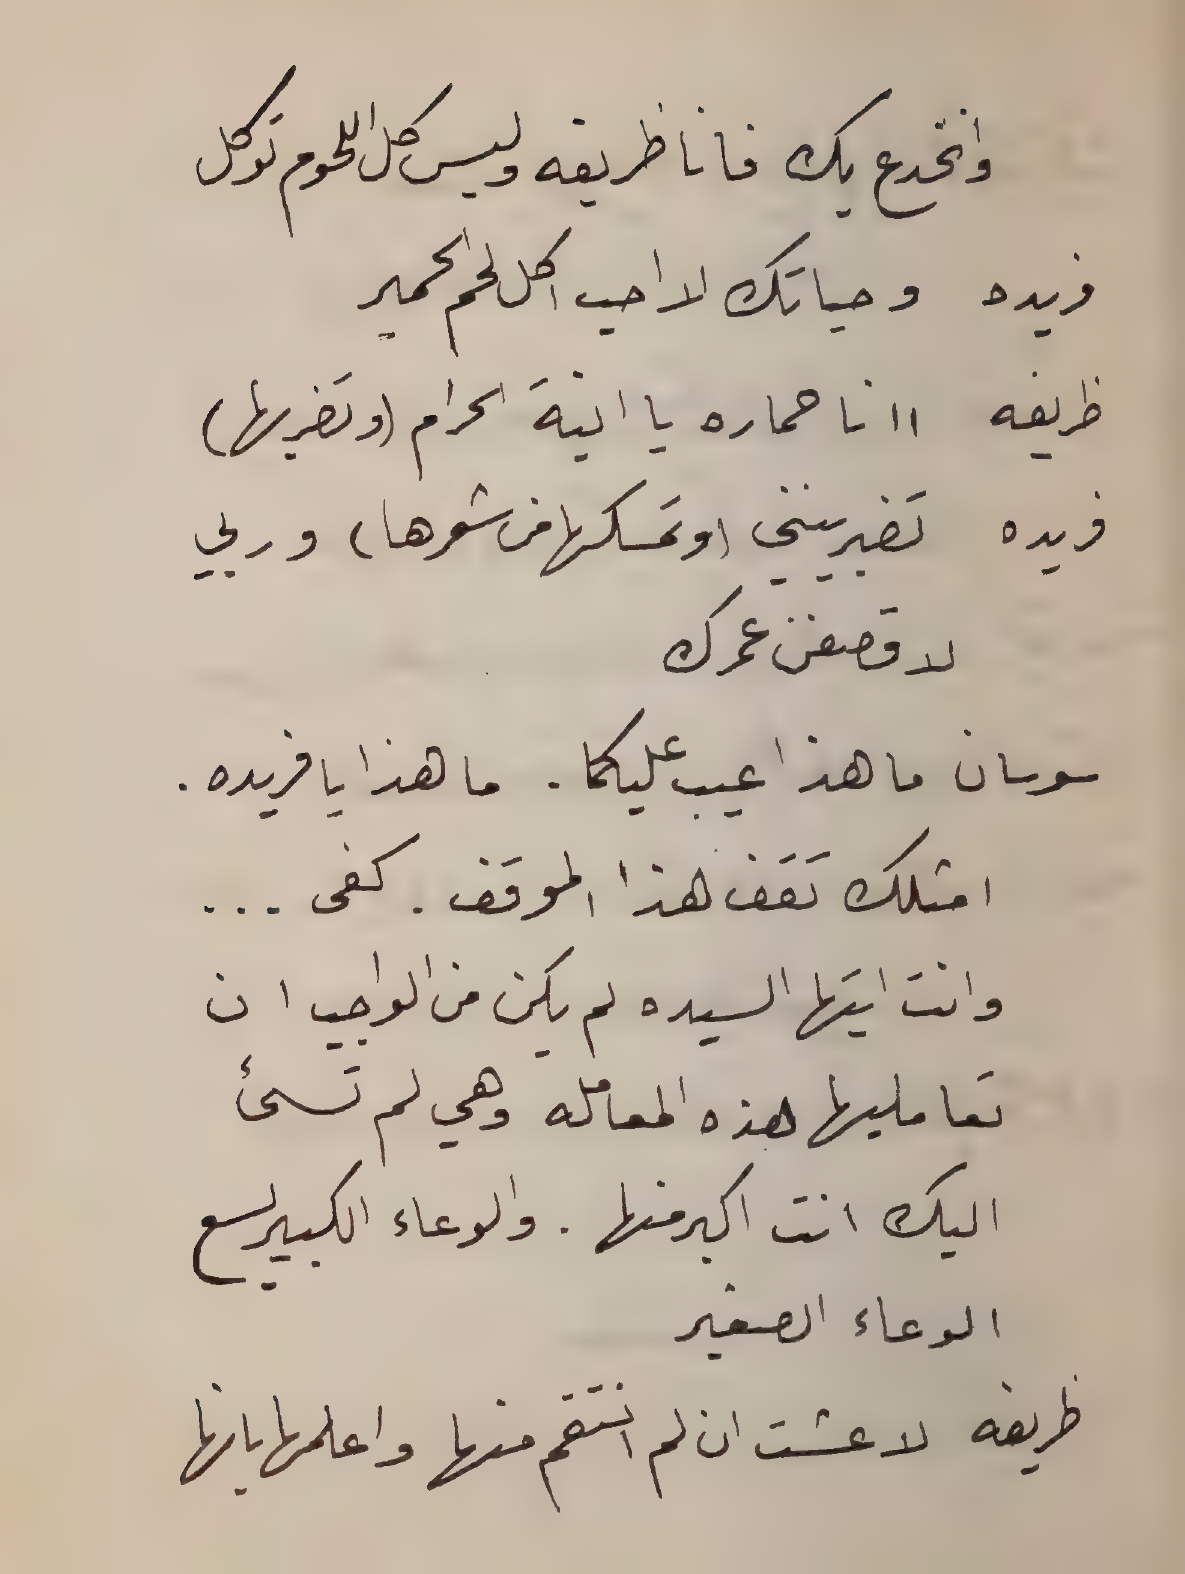 وانخدع بك فانا ظريفه وليس كل اللحوم توكل
فريده وحياتك لا احب اكل لحم الحمير
ظريفه اانا حماره يا ابنة الحرام (وتضربها)
فريده تضربينني (وتمسكها من شعرها) وربي
لاقصفن عمرك
سوسان ما هذا عيب عليكما . ما هذا يا فريده .
امثلك تقف هذا الموقف . كفى ...
وانت ايتها السيده لم يكن من الواجب ان
تعامليها هذه المعامله وهي لم تسئ
اليك انت اكبر منها . والوعاء الكبير يسع
الوعاء الصغير
ظريفه لا عشت ان لم انتقم منها واعلمها بانها